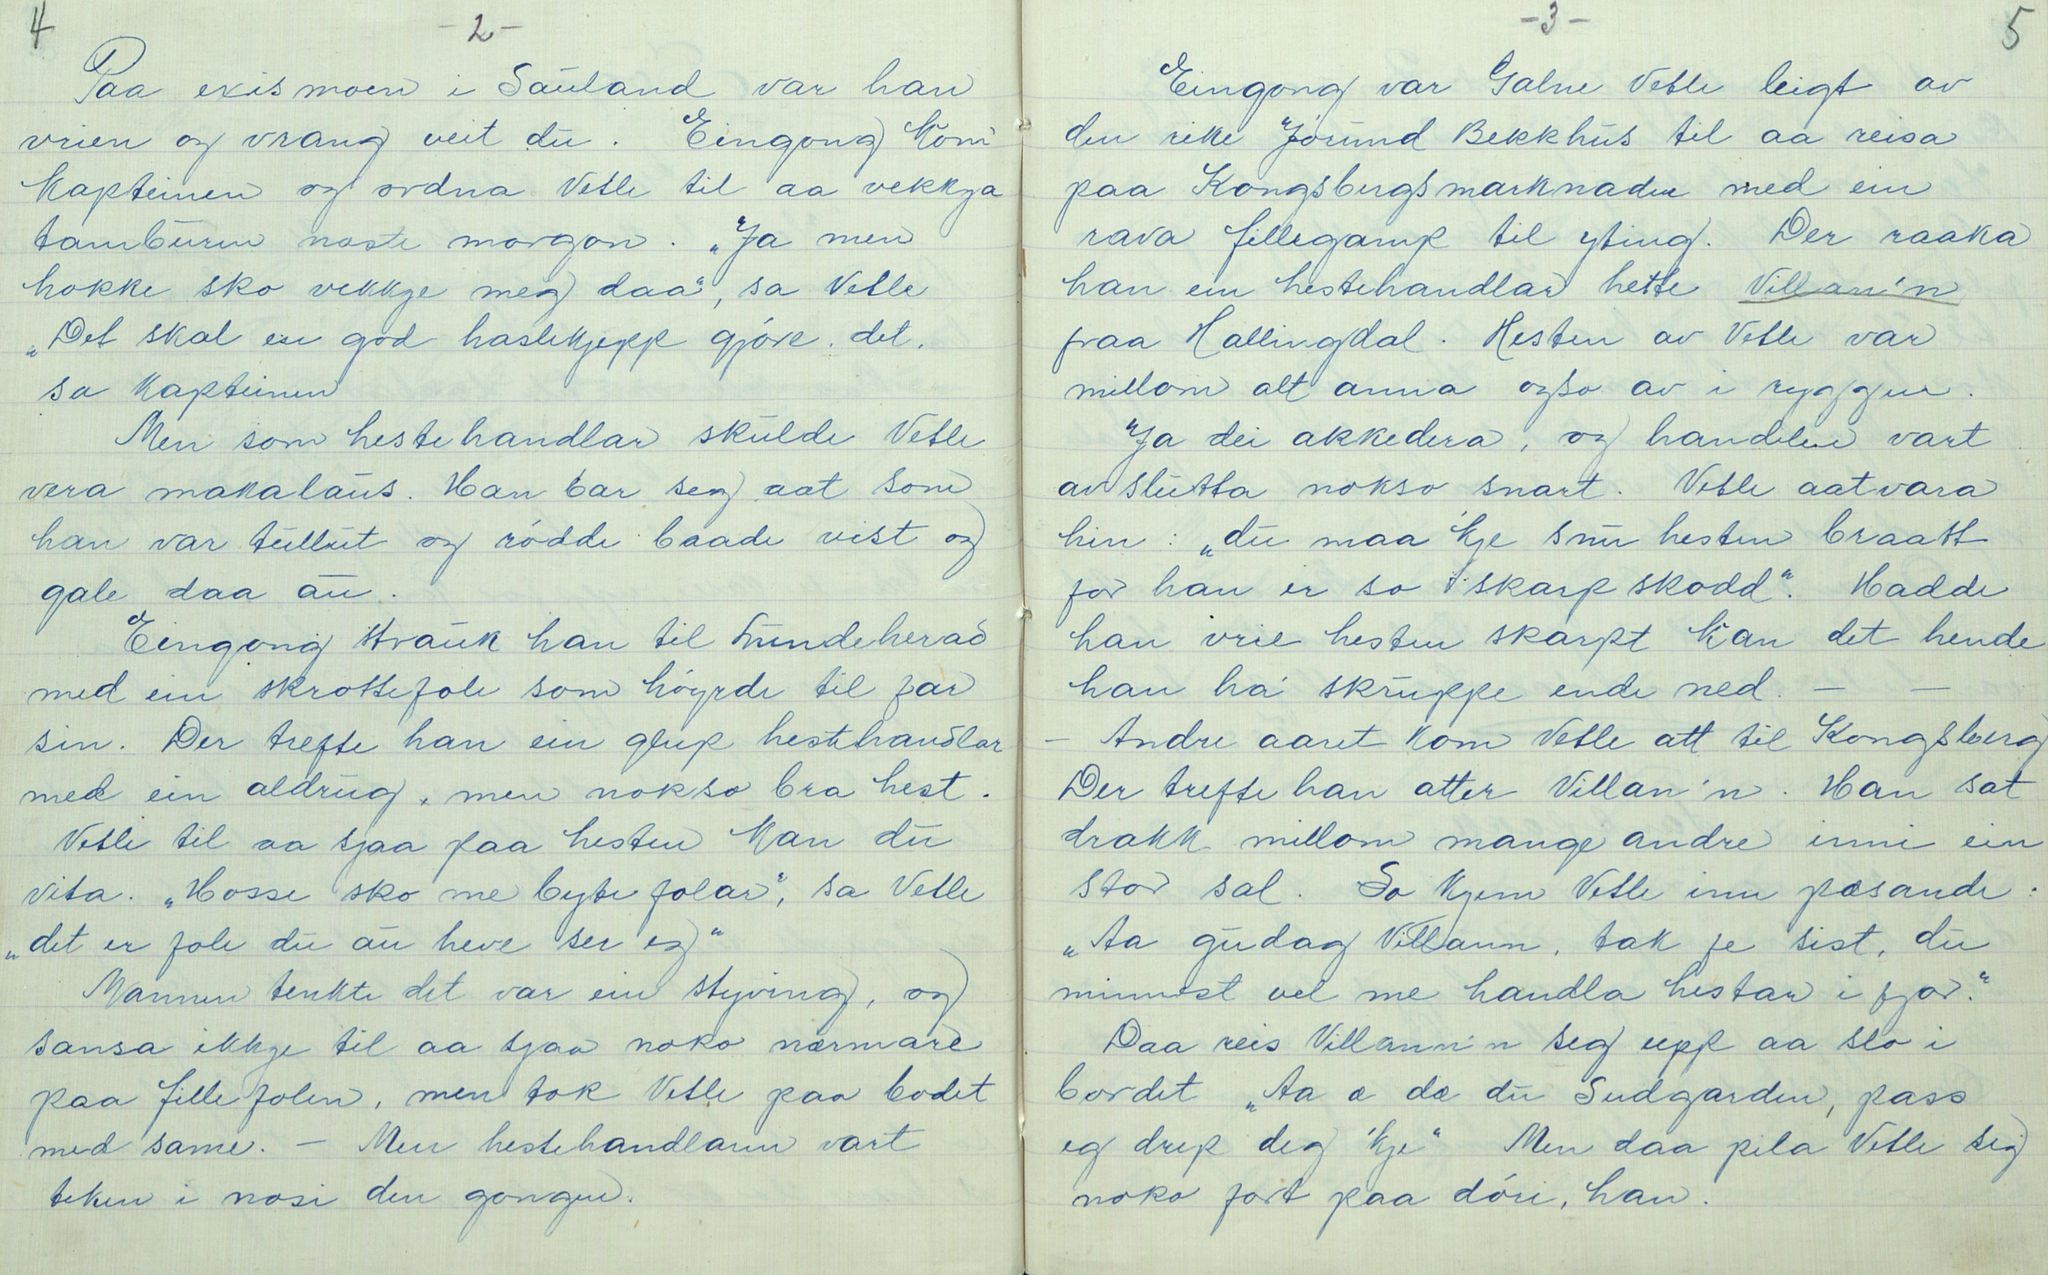 4
- 2 -
Paa exismoen i Sauland var han
vrien og vrang veit du. Eingong kom
kapteinen og ordna Vetle til aa vekkja
tamburen næste morgon. „Ja men
hokke sko vekkje meg daa", sa Vetle
„Det skal ein god haslekjepp gjöre det,
sa kapteinen
Men som hestehandlar skulde Vetle
vera makalaus. Han bar seg aat som
han var tullut og rödde baade vist og
gale daa au.
Eingong strauk han til Lundeherad
med ein skrottefole som höyrde til far
sin. Der trefte han ein glup hestehandlar
med ein aldrug, men nokso bra hest.
Vetle til aa sjaa paa hesten kan du
vita. „Hosse sko me byte folar", sa Vetle
„det er fole du au heve ser eg"
Mannen tenkte det var ein styving, og
sansa ikkje til aa sjaa noko nærmare
paa fillefolen, men tok Vetle paa bodet
med same. - Men hestehandlarin vart
teken i nosi den gongen.
- 3 -
5
Eingong var Galne Vetle leigt av
den rike Jörund Bekkhus til aa reisa
paa Kongsbergsmarknaden med ein
rava fillegamp til yting. Der raaka
han ein hestehandlar hette Villan'n
fraa Hallingdal. Hesten av Vetle var
millom alt anna ogso av i ryggen.
Ja dei akkedera, og handelen vart
avslutta nokso snart. Vetle aatvara
hin: „du maa 'kje snu hesten braatt
for han er so skarpskodd". Hadde
han vrie hesten skarpt kan det hende
han ha' skruppe ende ned. - -
- Andre aaret kom Vetle att til Kongsberg
Der trefte han atter Villan'n. Han sat
drakk millom mange andre inni ein
stor sal. So kjem Vetle inn pæsande:
„Aa gudag Villann, tak fe sist, du
minnest vel me handla hestar i fjor."
Daa reis Villann'n seg upp aa slo i
bordet „Aa æ dæ du Sudgarden, pass
eg drep deg 'kje" Men daa pila Vetle seg
noko fort paa döri, han.